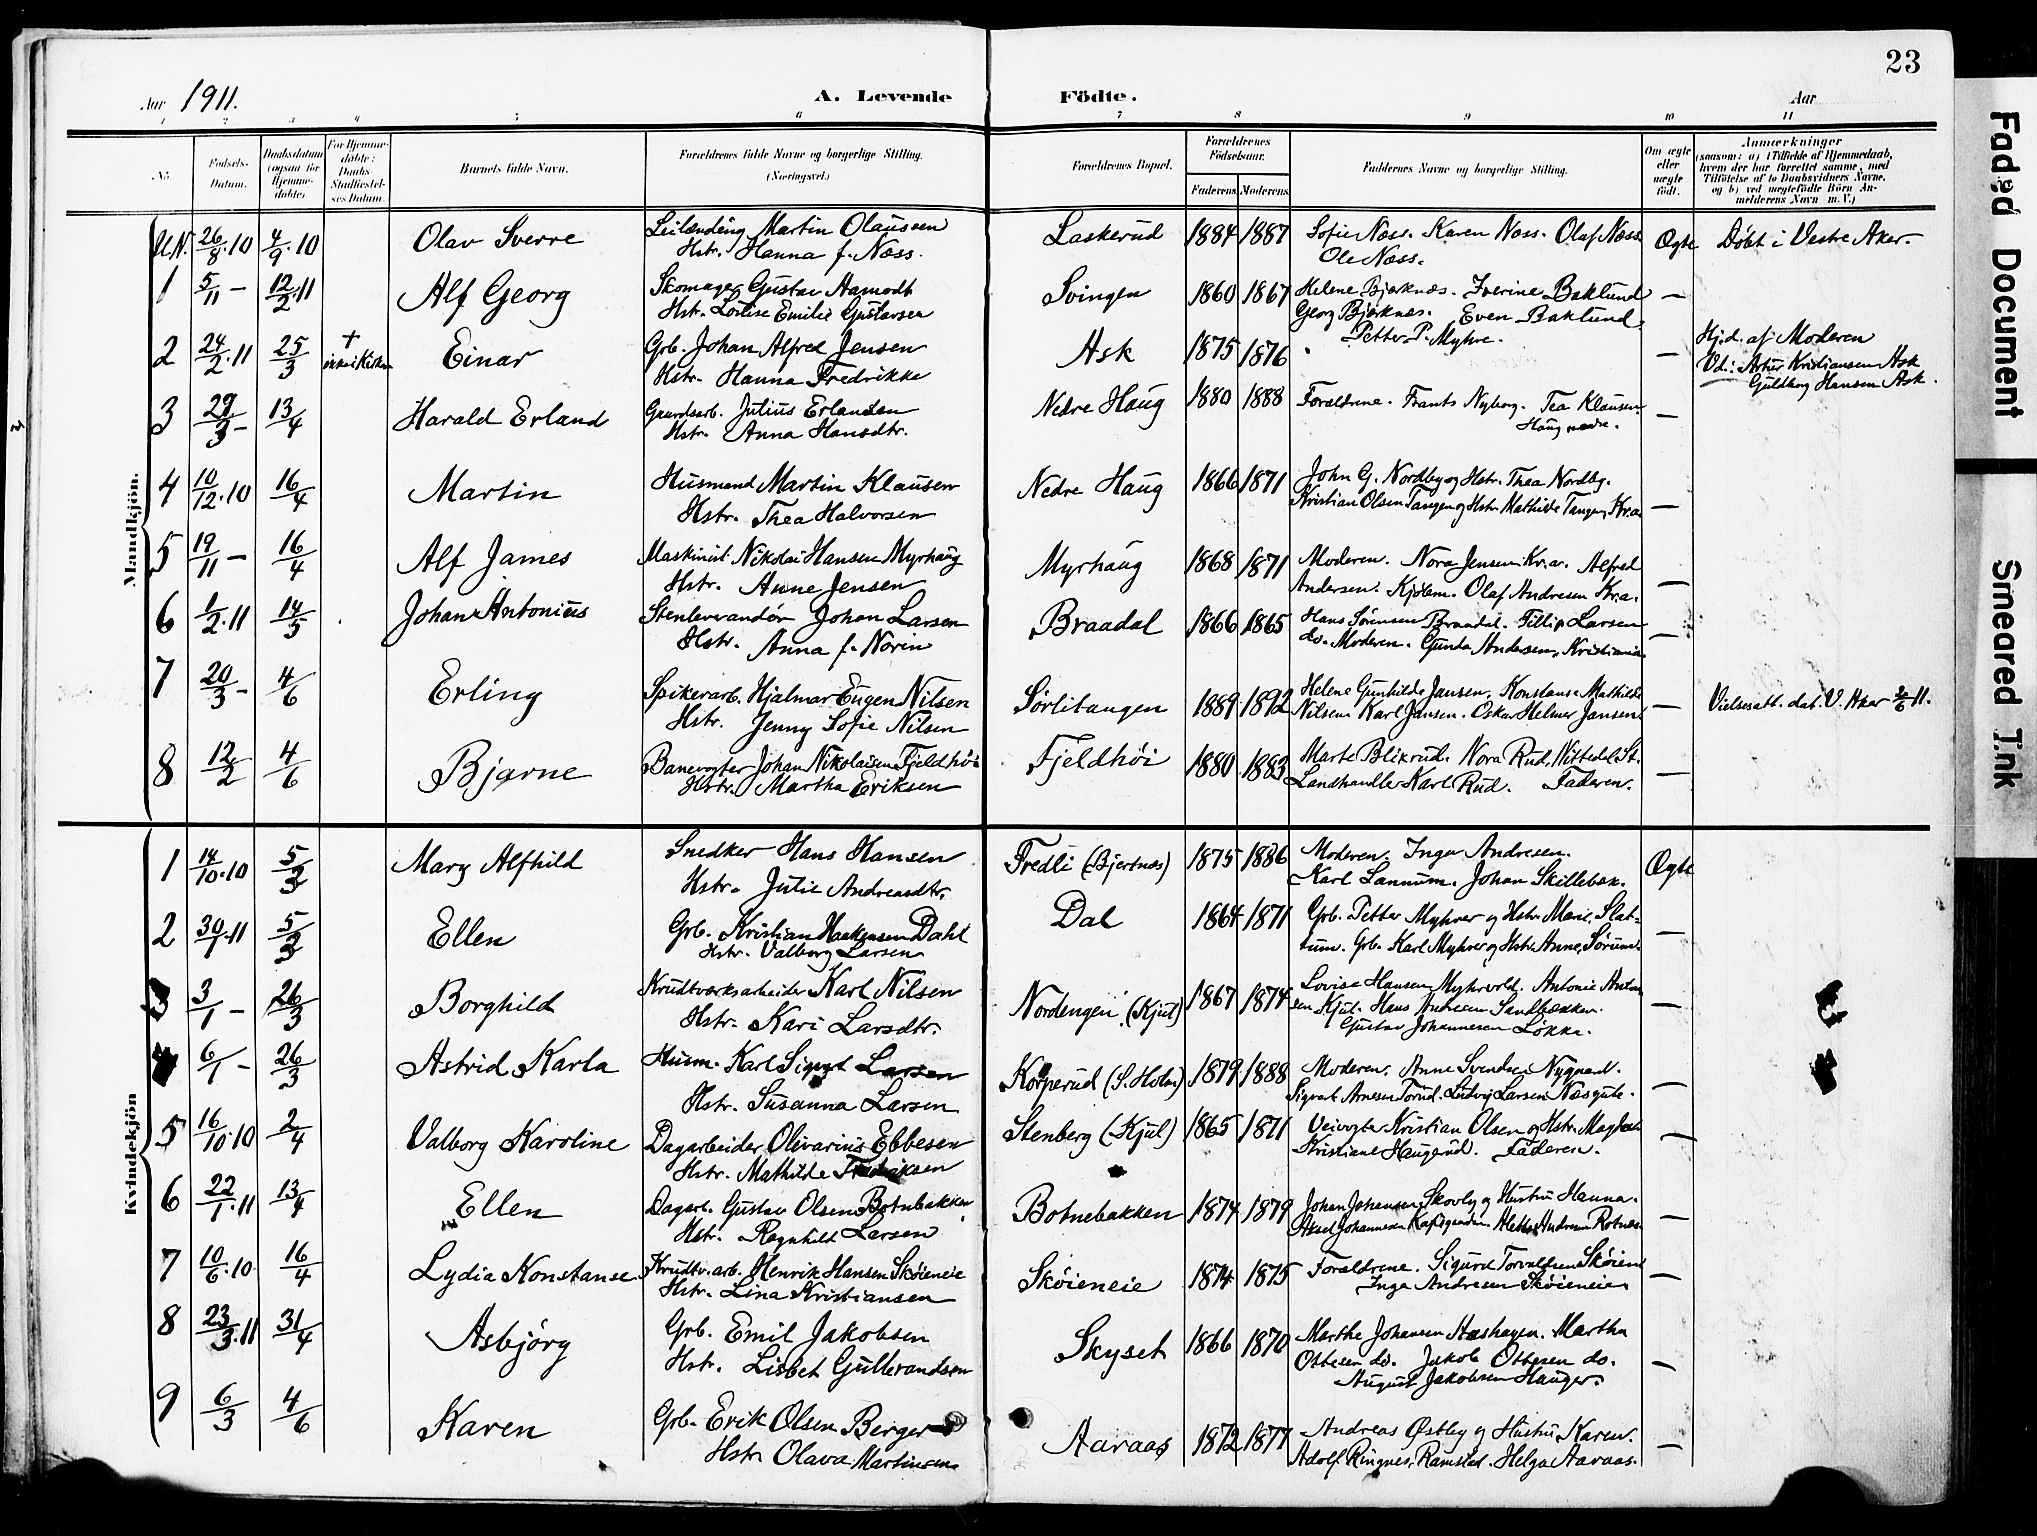 23
Aar 1911. A. Levende Födte. Aar
1 2 3 4 5 6 7 8 9 10 11
No. Födsels-Datum. Daabsdatum (ogsaa for Hjemme-døbte). For Hjemme-døbte: Daabs-Stadfæstel-ses Datum. Barnets fulde Navn. Forældrenes fulde Navne og borgerlige Stilling. (Næringsvei.) Forældrenes Bopæl. Forældrenes Födselsaar. Faderens. Moderens. Faddernes Navne og borgerlige Stilling. Om ægte eller uægte født. Anmærkninger (saasom: a) i Tilfælde af Hjemmedaab, hvem der har forrettet samme, med Tilføielse af to Daabsvidners Navne, og b) ved uægtefødte Börn An-melderens Navn m. V.)
Mandkjön.
U.N. 26/8.10 4/9.10 Olav Sverre Leilænding Martin Olaussen Laskerud 1884 1887 Sofie Næss. Karen Næss. Olaf Næss Ægte Døbt i Vestre Aker.
Hstr. Hanna f. Næss. Ole Næss.
1 5/11 - 12/2.11 Alf Georg Skomager Gustav Aamodt Svingen 1860 1867 Helene Bjerknæs. Iverine Baklund —
Hstr. Lovise Emilie Gustavsen Georg Bjerknæs. Even Baklund.
2 24/2.11 25/3 + Einar Grb. Johan Alfred Jensen Ask 1875 1876 Petter P. Myhre. — Hj.d. af Moderen
Hstr. Hanna Fredrikke Vd.: Artur Kristiansen Ask
Guldborg Hansen Ask.
3 29/3 - 13/4 Harald Erland Gaardsarb. Julius Erlandsen Nedre Haug 1880 1888 Forældrene. Frants Nyborg. Tea Klausen —
Hstr. Anna Hansdtr. Haug nedre.
4 10/12.10 16/4 Martin Husmand Martin Klausen Nedre Haug 1866 1871 John G. Nordby og Hstr. Thea Nordby.
Hstr. Thea Halvorsen Kristian Olsen Tangen og Hstr. Mathilde Tangen, Kr.a. —
5 19/11 - 16/4 Alf James Maskinist Nikolai Hansen Myrhaug Myrhaug 1868 1871 Moderen. Nora Jensen Kr.a. Alfred
Hstr. Anne Jensen Andersen. Kjølem. Olaf Andresen Kr.a. —
6 1/2.11 14/5 Johan Antonius Stenleverandør Johan Larsen Braadal 1866 1865 Hans Sørensen Braadal. Fillip Larsen
Hstr. Anna f. Norin do. Moderen. Gunda Andersen, Kristiania —
7 20/3 - 4/6 Erling Spikerarb. Hjalmar Eugen Nilsen Sørlitangen 1889 1892 Helene Gunhilde Jansen. Konstanse Mathilde
Hstr. Jenny Sofie Nilsen Nilsen Karl Jansen. Oskar Helmer Jansen. — Vielsesatt. dat. V. Aker 2/6 11.
8 12/2 4/6 Bjarne Banevogter Johan Nikolaisen Fjeldhøi Fjeldhøi 1880 1883 Marte Blikrud. Nora Rud, Nittedal St.
Hstr. Martha Eriksen Landhandler Karl Rud. Faderen. —
Kvindekjön
1 14/10.10 5/3 Mary Alfhild Snedker Hans Hansen Fredli (Bjertnæs) 1875 1886 Moderen. Inga Andresen. Ægte
Hstr. Julie Andreasdtr. Karl Lannum. Johan Skillebæk.
2 30/1.11 5/3 Ellen Grb. Kristian Haakensen Dahl Dal 1864 1871 Grb. Petter Myhrer og Hstr. Marie, Slat-
Hstr. Valborg Larsen tum. Grb. Karl Myhrer og Hstr. Anne, Sørum. —
3 3/1 - 26/3 Borghild Krudtværksarbeider Karl Nilsen Nordengen (Kjul) 1867 1874 Lovise Hansen Myhrvold. Antonie Anton
Hstr. Kari Larsdtr. sen Kjul. Hans Andresen Sandbakken. —
Gustav Johannesen Løkka.
4 6/1 - 26/3 Astrid Karla Husm. Karl Sigvart Larsen Korperud (S. Holm) 1879 1888 Moderen. Anne Svendsen Nygaard.
Hstr. Susanna Larsen Sigvart Arnesen Torud. Ludvig Larsen Næsgutu. —
5 16/10.10 2/4 Valborg Karoline Dagarbeider Olivarius Ebbesen Stenberg (Kjul) 1865 1871 Veivogter Kristian Olsen og Hstr.
Hstr. Mathilde Fredriksen Kristiane Haugerud. Faderen. —
6 22/1.11 13/4 Ellen Dagarb. Gustav Olsen Botnebakken Botnebakken 1874 1879 Johan Johansen Skovly og Hustru Hanna.
Hstr. Ragnhild Larsen Aksel Johannesen Andersen Rotnæs —
7 10/6.10 16/4 Lydia Konstanse Krudtv.arb. Henrik Hansen Skøieneie Skøieneie 1874 1875 Forældrene. Sigurd Torvaldsen Skøien
Hstr. Lina Kristiansen Inga Andresen Skøieneie —
8 23/3.11 31/4 Asbjörg Grb. Emil Jakobsen Skyset 1866 1870 Marthe Johansen Aashagen. Martha
Hstr. Lisbet Gulbrandsen Ottesen do. Jakob Ottesen do. —
August Jakobsen Hauger.
9 6/3 4/6 Karen Grb. Erik Olsen Berger Aaraas 1872 1877 Andreas Østby og Hustru Karen.
Hstr. Olava Martinsen Adolf Ringnes, Ramstad. Helga Aaraas. —
Faded Document
Smeared Ink